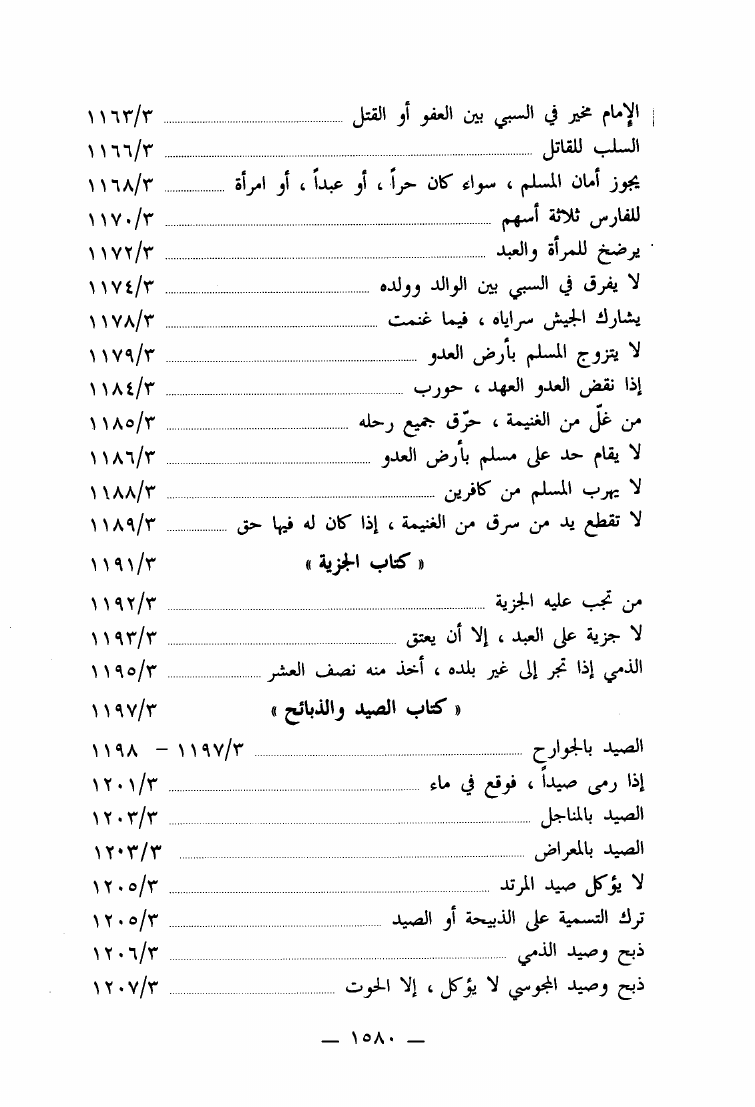 الإمام مخير في السبي بين العفو أو القتل ١١٦٣/٣
السلب للقاتل ١١٦٦/٣
يجوز أمان المسلم ، سواء كان حراً ، أو عبداً ، أو امرأة ١١٦٨/٣
للفارس ثلاثة أسهم ١١٧٠/٣
يرضخ للمرأة والعبد ١١٧٢/٣
لا يفرق في السبي بين الوالد وولده ١١٧٤/٣
يشارك الجيش سراياه ، فيما غنمت ١١٧٨/٣
لا يتزوج المسلم بأرض العدو ١١٧٩/٣
إذا نقض العدو العهد ، حورب ١١٨٤/٣
من غلّ من الغنيمة ، حرّق جميع رحله ١١٨٥/٣
لا يقام حد على مسلم بأرض العدو ١١٨٦/٣
لا يهرب المسلم من كافرين ١١٨٨/٣
لا تقطع يد من سرق من الغنيمة ، إذا كان له فيها حق ١١٨٩/٣
« كتاب الجزية » ١١٩١/٣
من تجب عليه الجزية ١١٩٢/٣
لا جزية على العبد ، إلا أن يعتق ١١٩٣/٣
الذمي إذا تجر إلى غير بلده ، أخذ منه نصف العشر ١١٩٥/٣
« كتاب الصيد والذبائح » ١١٩٧/٣
الصيد بالجوارح ١١٩٧/٣ – ١١٩٨
إذا رمى صيداً ، فوقع في ماء ١٢٠١/٣
الصيد بالمناجل ١٢٠٣/٣
الصيد بالمعراض ١٢٠٣/٣
لا يؤكل صيد المرتد ١٢٠٥/٣
ترك التسمية على الذبيحة أو الصيد ١٢٠٥/٣
ذبح وصيد الذمي ١٢٠٦/٣
ذبح وصيد المجوسي لا يؤكل ، إلا الحوت ١٢٠٧/٣
— ١٥٨٠ —